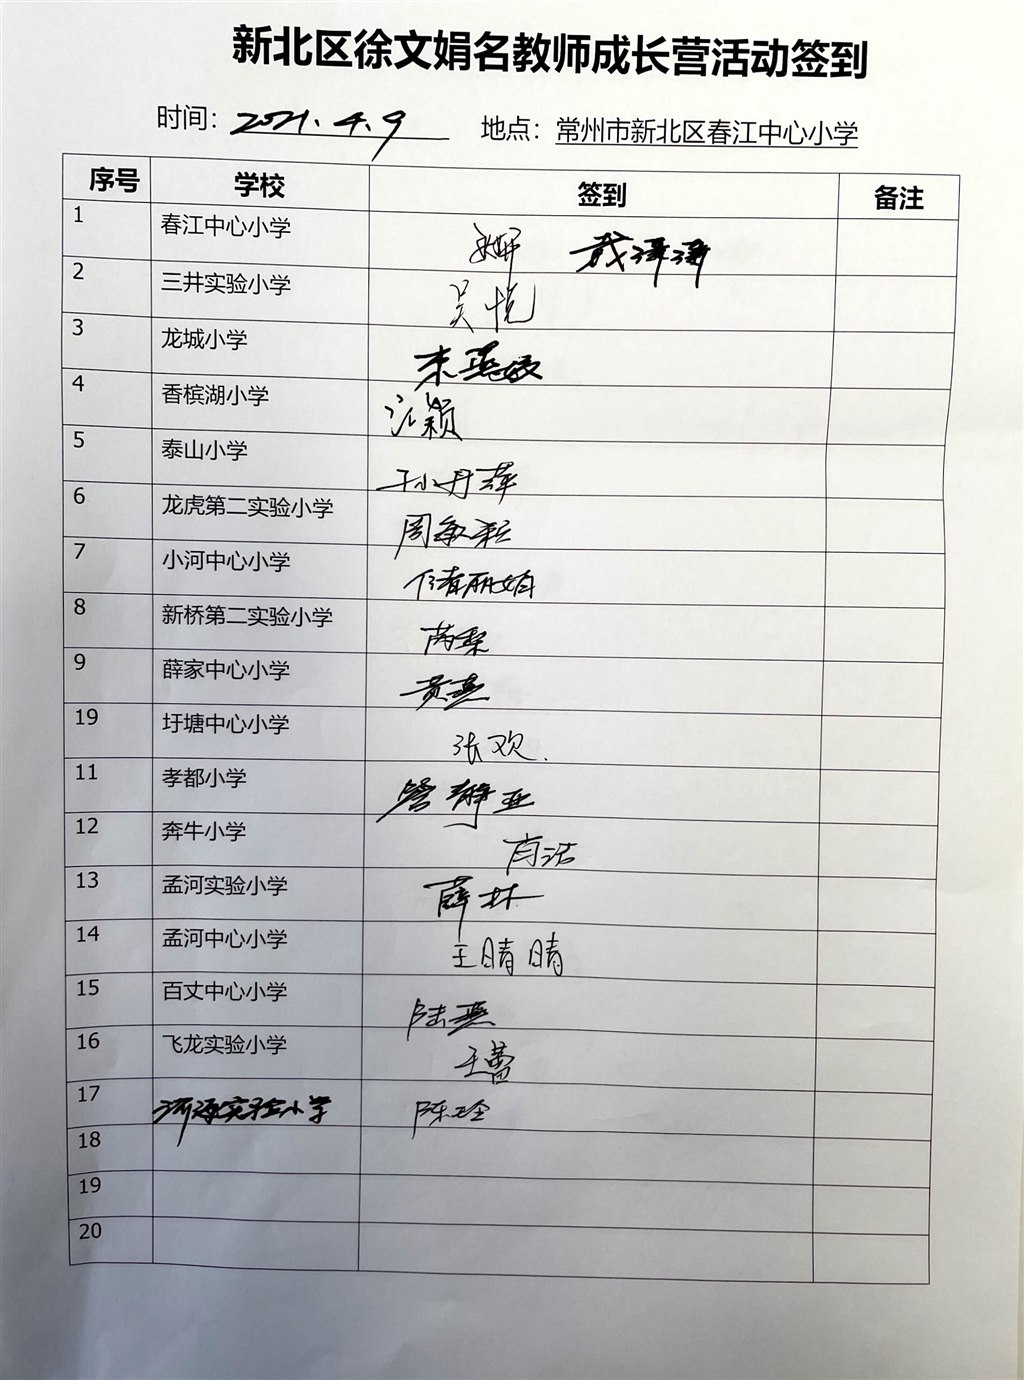 新北区徐文娟名教师成长营活动签到
时间：2021.4.9 地点：常州市新北区春江中心小学
序号 学校 签到 备注
1 春江中心小学
2 三井实验小学 吴悦
3 龙城小学 朱燕
4 香槟湖小学 颖
5 泰山小学 孙丹萍
6 龙虎第二实验小学 周
7 小河中心小学 倩
8 新桥第二实验小学 芮梨
9 薛家中心小学 黄燕
19 圩塘中心小学 张欢.
11 孝都小学 管静亚
12 奔牛小学 肖洁
13 孟河实验小学 薛林
14 孟河中心小学 王晴晴
15 百丈中心小学 陆燕
16 飞龙实验小学 王蕾
17 济源实验小学 陈玲
18
19
20